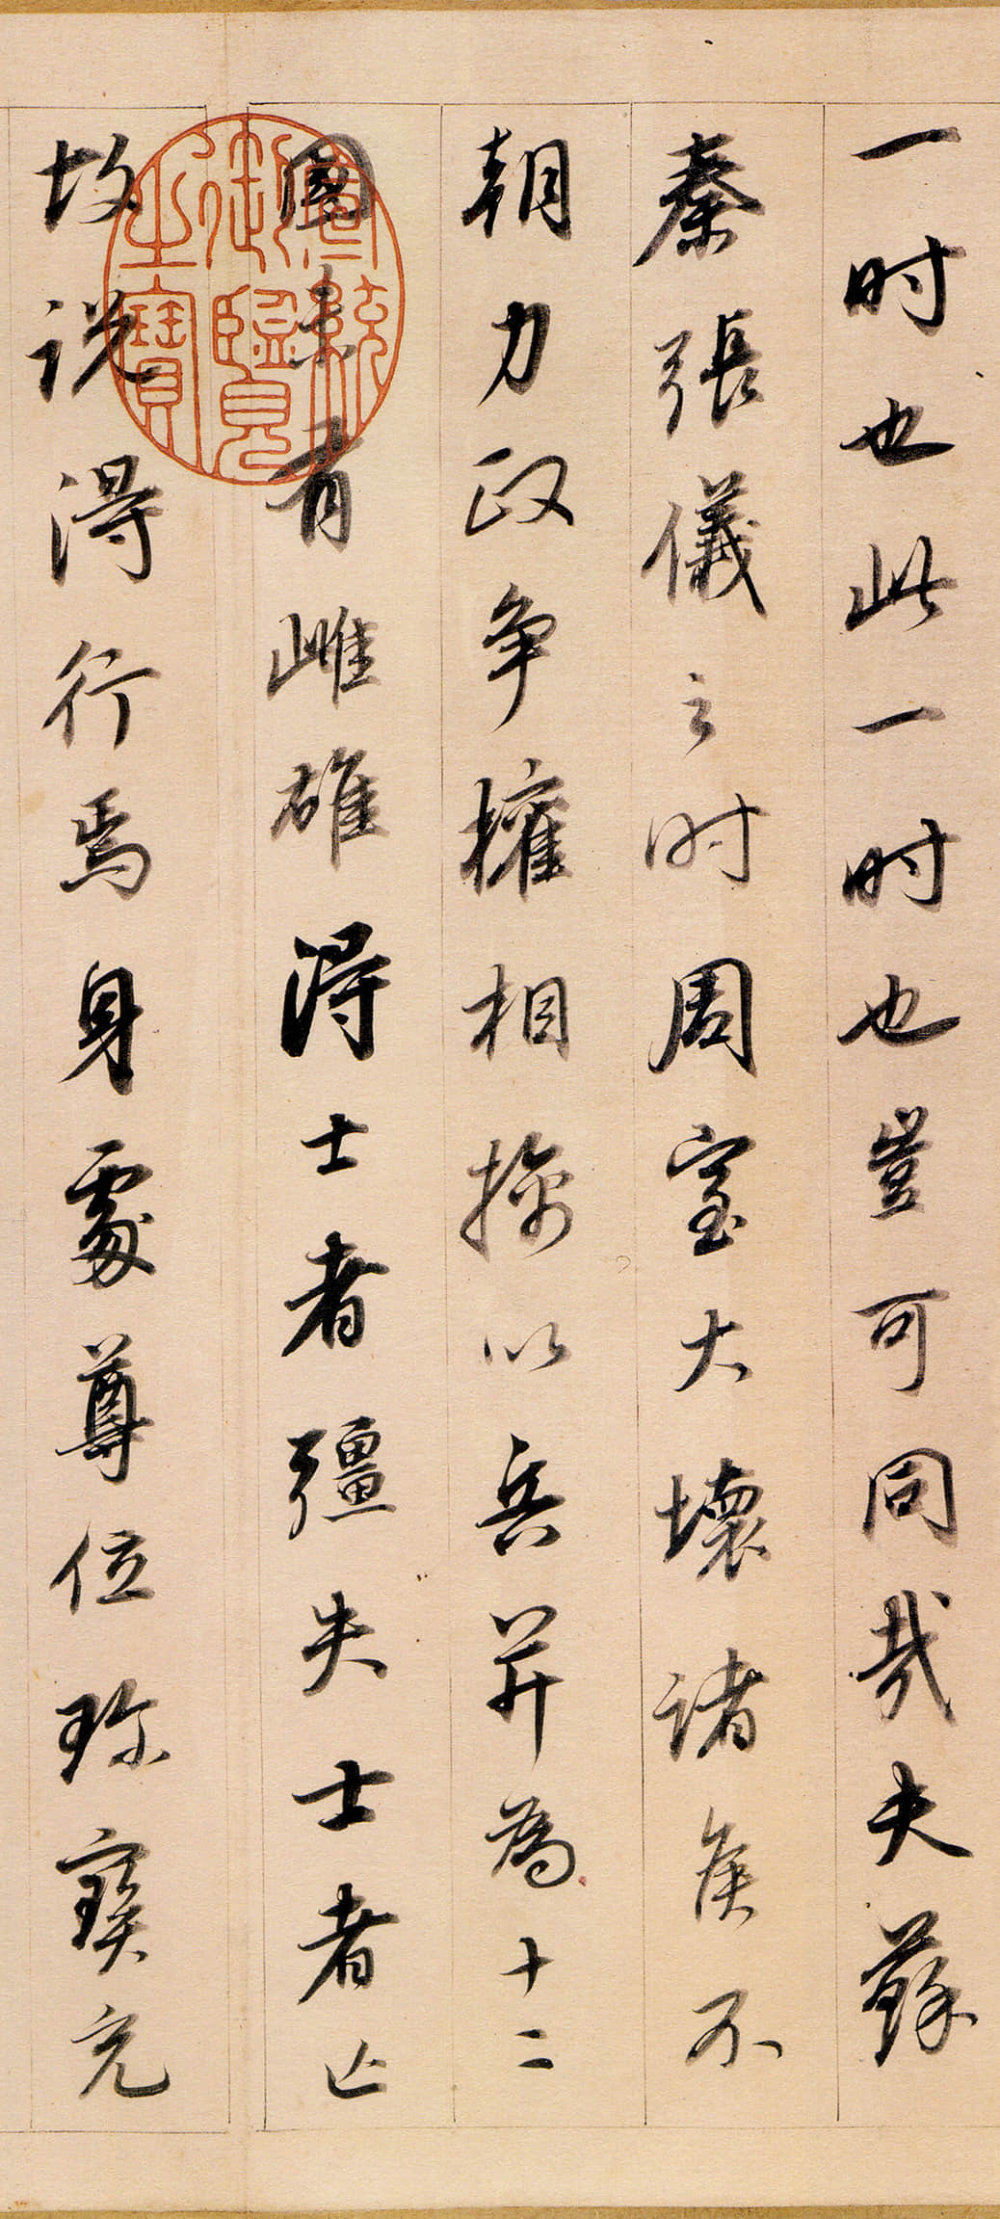 一時也此一時也豈可同哉夫蘇
秦張儀之時周室大壞諸侯不
朝力政爭權相擒以兵并為十二
國未有雌雄得士者彊失士者亡
故說得行焉身處尊位珍寶充
宣統御覽之寶